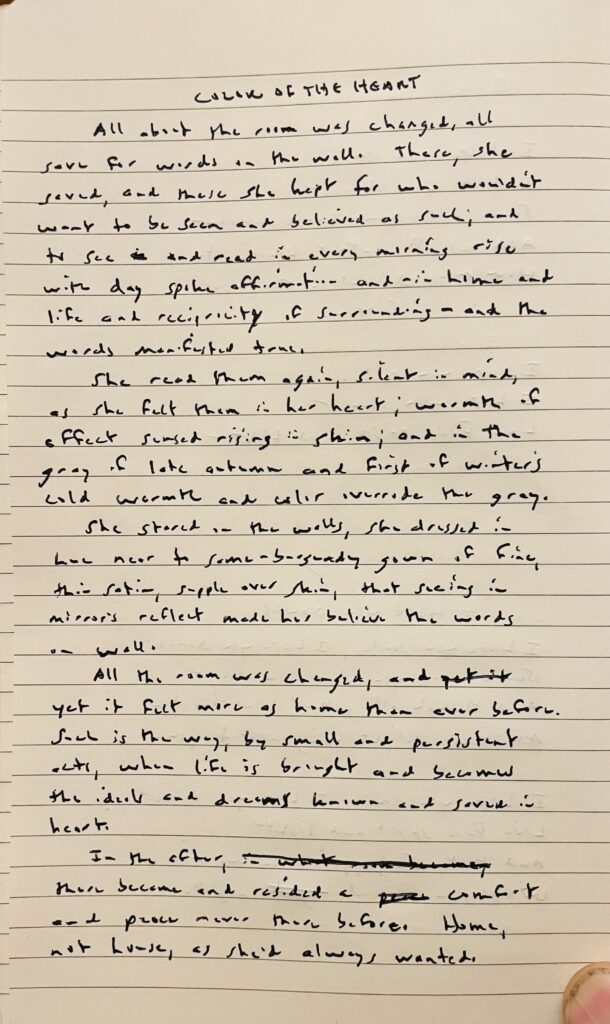 COLOR OF THE HEART
All about the room was changed, all
save for words on the wall. These, she
saved, and these she kept for who wouldn't
want to be seen and believed as such; and
to see and read in every morning rise
with day spoke affirmation and home and
life and reciprocity of surrounding - and the
words manifested true.
She read them again, silent in mind,
as she felt them in her heart; warmth of
affect sensed rising in skin; and in the
gray of late autumn and first of winter's
cold warmth and color override the gray.
She stared on the walls, she dressed in
hue near to same - burgundy gown of fine,
thin satin, supple over skin, that seeing in
mirror's reflect made her believe the words
on wall.
All the room was changed, and yet it
yet it felt more as home than ever before.
Such is the way, by small and persistent
acts, when life is brought and becomes
the ideals and dreams known and saved in
heart.
In the after, in what room became,
there became and resided a peace comfort
and peace never there before. Home,
not house, as she'd always wanted.